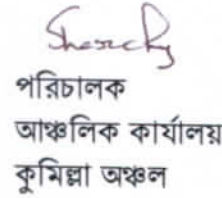 পরিচালক
আঞ্চলিক কার্যালয়
কুমিল্লা অঞ্চল